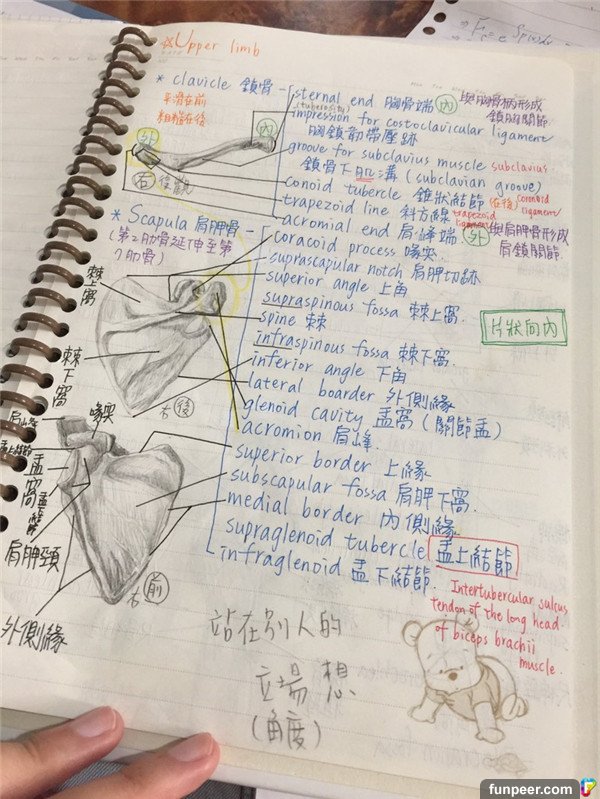 ※Upper limb
* clavicle 鎖骨
平滑在前
粗糙在後
sternal end 胸骨端 內 與胸骨柄形成
鎖胸關節
(tuberosity)
impression for costoclavicular ligament
胸鎖韌帶壓跡
groove for subclavius muscle subclavius
鎖骨下肌溝 (subclavian groove)
conoid tubercle 錐狀結節 (在後) conoid
ligament
trapezoid line 斜方線 trapezoid
ligament
acromial end 肩峰端 外 與肩胛骨形成
肩鎖關節
外
內
右 後觀
* Scapula 肩胛骨
(第2肋骨延伸至第
7肋骨)
coracoid process 喙突
suprascapular notch 肩胛切跡
superior angle 上角
supraspinous fossa 棘上窩
spine 棘
片狀向內
infraspinous fossa 棘下窩
inferior angle 下角
lateral boarder 外側緣
glenoid cavity 盂窩 (關節盂)
acromion 肩峰
superior border 上緣
subscapular fossa 肩胛下窩
medial border 內側緣
supraglenoid tubercle 盂上結節
infraglenoid 盂下結節
棘上窩
棘下窩
右 後
肩峰
喙突
盂上結節
盂窩
盂下結節
肩胛頸
右 前
外側緣
Intertubercular sulcus
tendon of the long head
of biceps brachii
muscle.
站在別人的
立場想
(角度)
funpeer.com